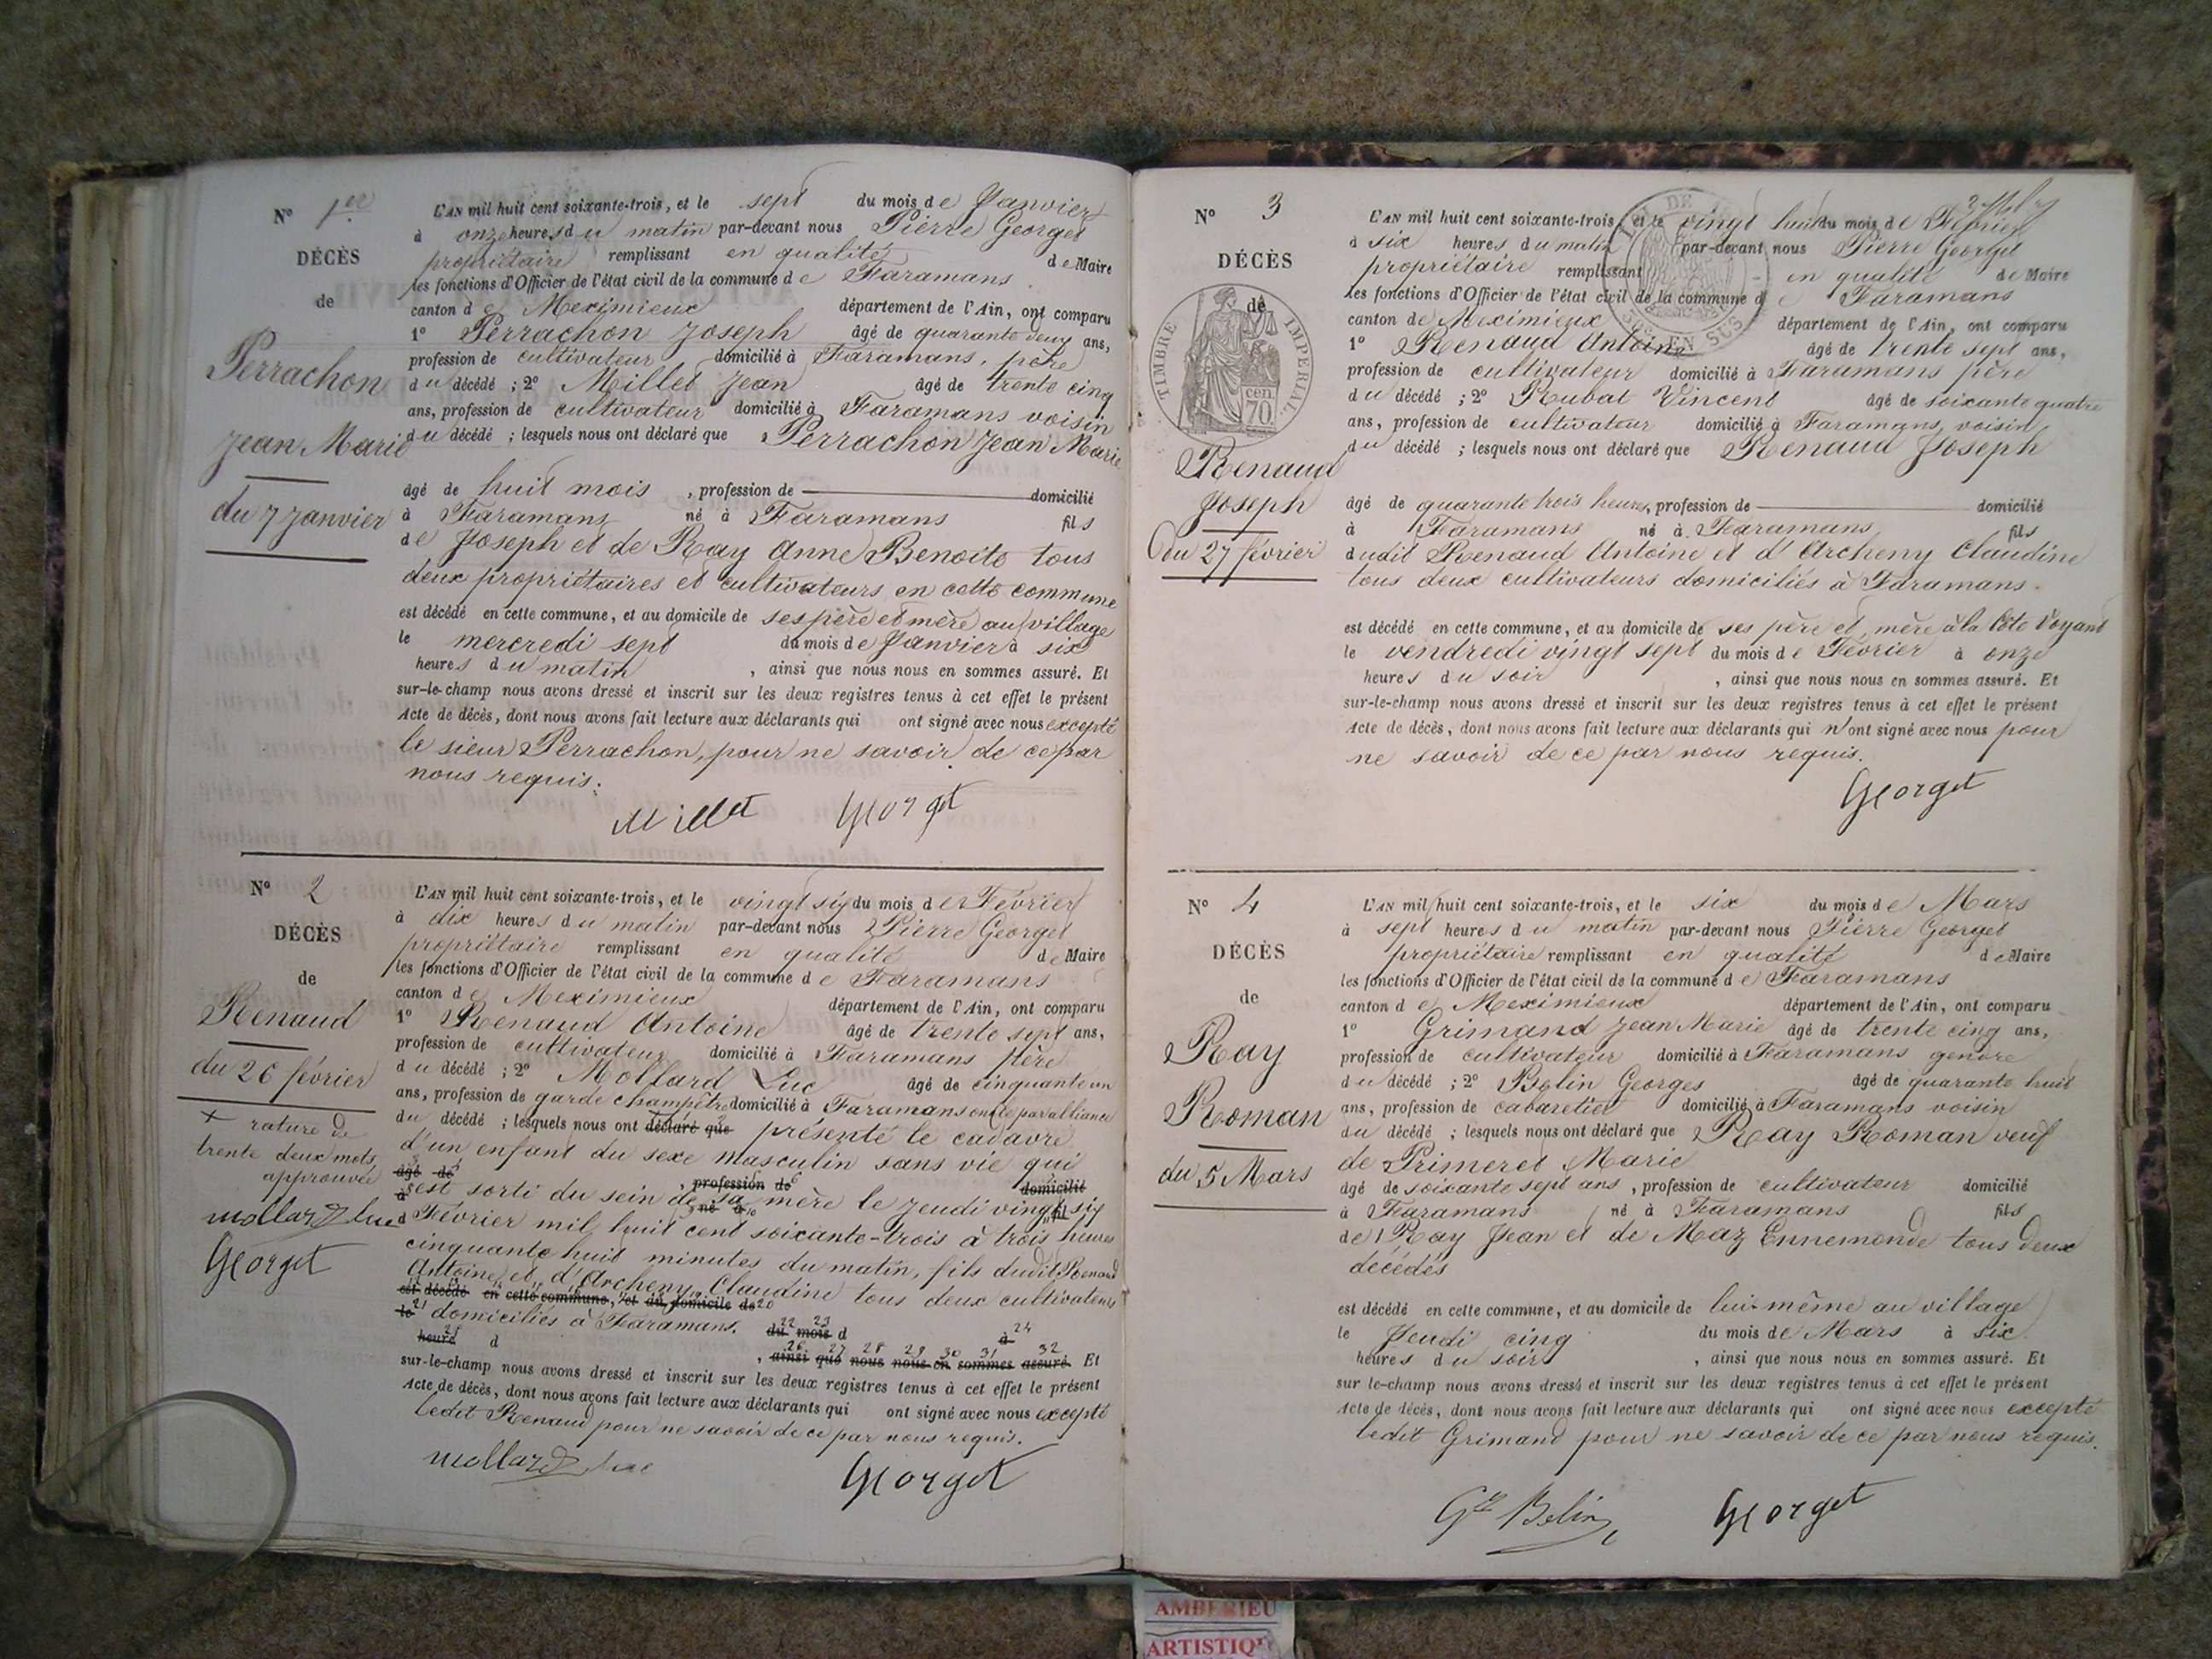 N° 1er
DÉCÈS
de
Perrachon
Jean Marie
du 7 Janvier
L'AN mil huit cent soixante-trois, et le sept du mois de Janvier
à onze heures du matin par-devant nous Pierre Georget
propriétaire remplissant en qualité de Maire
les fonctions d'Officier de l'état civil de la commune de Faramans
canton de Meximieux département de l'Ain, ont comparu
1° Perrachon Joseph âgé de quarante deux ans,
profession de cultivateur domicilié à Faramans, père
du décédé ; 2° Millet Jean âgé de trente cinq
ans, profession de cultivateur domicilié à Faramans voisin
du décédé ; lesquels nous ont déclaré que Perrachon Jean Marie
âgé de huit mois , profession de domicilié
à Faramans né à Faramans fils
de Joseph et de Ray Anne Benoite tous
deux propriétaires et cultivateurs en cette commune
est décédé en cette commune, et au domicile de ses père et mère au village
le mercredi sept du mois de Janvier à six
heures du matin , ainsi que nous nous en sommes assuré. Et
sur-le-champ nous avons dressé et inscrit sur les deux registres tenus à cet effet le présent
Acte de décès, dont nous avons fait lecture aux déclarants qui ont signé avec nous excepté
le sieur Perrachon, pour ne savoir de ce par
nous requis.
Millet Georget
N° 2
DÉCÈS
de
Renaud
du 26 février
+ rature de
trente deux mots
approuvée
mollard luc
Georget
L'AN mil huit cent soixante-trois, et le vingt six du mois de Février
à dix heures du matin par-devant nous Pierre Georget
propriétaire remplissant en qualité de Maire
les fonctions d'Officier de l'état civil de la commune de Faramans
canton de Meximieux département de l'Ain, ont comparu
1° Renaud Antoine âgé de trente sept ans,
profession de cultivateur domicilié à Faramans père
du décédé ; 2° Mollard Luc âgé de cinquante un
ans, profession de garde champêtre domicilié à Faramans oncle par alliance
du décédé ; lesquels nous ont déclaré que présenté le cadavre
d'un enfant du sexe masculin sans vie qui
âgé de , profession de domicilié
à est sorti du sein de sa mère le jeudi vingt six
né à fil
d Février mil huit cent soixante-trois à trois heures
cinquante huit minutes du matin, fils dudit Renaud
Antoine, et d'Archeny Claudine tous deux cultivateurs
est décédé en cette commune, et au domicile de 20
le 21 domiciliés à Faramans. du 22 mois 23 d à 24
heure 25 d
, ainsi 26 que 27 nous 28 nous 29 en 30 sommes 31 assuré 32. Et
sur-le-champ nous avons dressé et inscrit sur les deux registres tenus à cet effet le présent
Acte de décès, dont nous avons fait lecture aux déclarants qui ont signé avec nous excepté
ledit Renaud pour ne savoir de ce par nous requis.
mollard luc Georget
N° 3
DÉCÈS
de
TIMBRE IMPERIAL
70 cen.
Renaud
Joseph
du 27 février
L'AN mil huit cent soixante-trois, et le vingt huit du mois de Février
à six heures du matin par-devant nous Pierre Georget
propriétaire remplissant en qualité de Maire
les fonctions d'Officier de l'état civil de la commune de Faramans
canton de Meximieux département de l'Ain, ont comparu
EN SUS
1° Renaud Antoine âgé de trente sept ans,
profession de cultivateur domicilié à Faramans père
du décédé ; 2° Rubat Vincent âgé de soixante quatre
ans, profession de cultivateur domicilié à Faramans voisin
du décédé ; lesquels nous ont déclaré que Renaud Joseph
âgé de quarante trois heures, profession de domicilié
à Faramans né à Faramans fils
dudit Renaud Antoine et d'Archeny Claudine
tous deux cultivateurs domiciliés à Faramans.
est décédé en cette commune, et au domicile de ses père et mère à la Côte
le vendredi vingt sept du mois de Février à onze
heures du soir , ainsi que nous nous en sommes assuré. Et
sur-le-champ nous avons dressé et inscrit sur les deux registres tenus à cet effet le présent
Acte de décès, dont nous avons fait lecture aux déclarants qui n'ont signé avec nous pour
ne savoir de ce par nous requis.
Georget
N° 4
DÉCÈS
de
Ray
Roman
du 5 Mars
L'AN mil huit cent soixante-trois, et le six du mois de Mars
à sept heures du matin par-devant nous Pierre Georget
propriétaire remplissant en qualité de Maire
les fonctions d'Officier de l'état civil de la commune de Faramans
canton de Meximieux département de l'Ain, ont comparu
1° Grimand Jean Marie âgé de trente cinq ans,
profession de cultivateur domicilié à Faramans gendre
du décédé ; 2° Belin Georges âgé de quarante huit
ans, profession de cabaretier domicilié à Faramans voisin
du décédé ; lesquels nous ont déclaré que Ray Roman veuf
de Primeret Marie
âgé de soixante sept ans , profession de cultivateur domicilié
à Faramans né à Faramans fils
de Ray Jean et de Maz Ennemonde tous deux
décédés
est décédé en cette commune, et au domicile de lui-même au village
le Jeudi cinq du mois de Mars à six
heures du soir , ainsi que nous nous en sommes assuré. Et
sur le-champ nous avons dressé et inscrit sur les deux registres tenus à cet effet le présent
Acte de décès, dont nous avons fait lecture aux déclarants qui ont signé avec nous excepté
ledit Grimand pour ne savoir de ce par nous requis.
Gs Belin Georget
AMBERIEU
ARTISTIQU